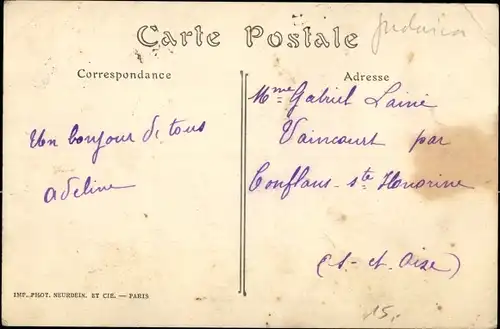 Carte Postale
Judaica
Correspondance
Adresse
Un bonjour de tous
Adeline
Mme Gabriel Lainé
Vaincourt par
Conflans-Ste Honorine
(S.-et-Oise)
IMP. PHOT. NEURDEIN. ET CIE. — PARIS
15,